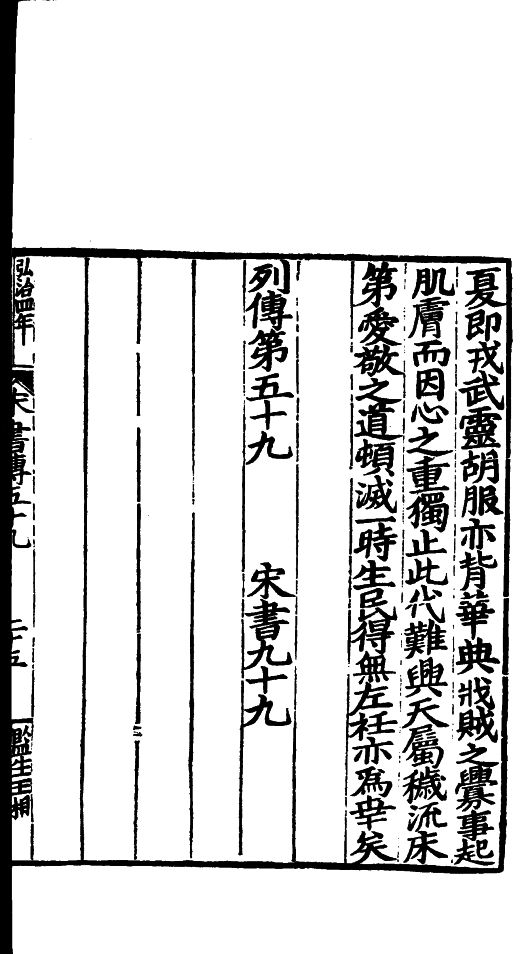 夏即戎武靈胡服亦背華典戕賊之釁事起
肌膚而因心之重獨止此代難興天屬穢流床
第愛敬之道頓滅一時生民得無左衽亦為幸矣
列傳第五十九 宋書九十九
弘治四年 宋書傳五十九 二十五 監生王相